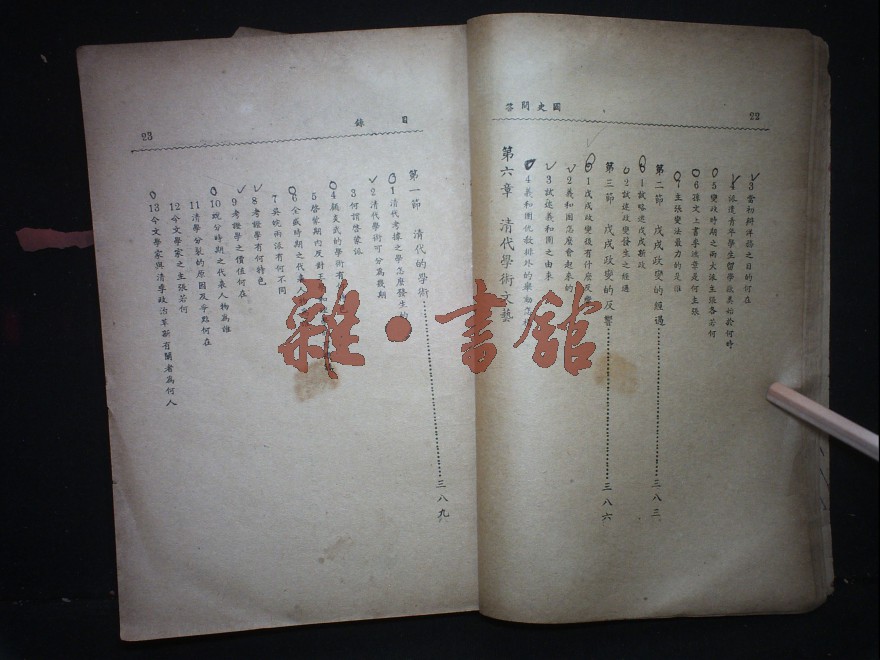 國史問答
22
3 當初辦洋務之目的何在
4 派遣青年學生留學歐美始於何時
5 變政時期之兩大派主張各若何
6 孫文上書李鴻章是何主張
7 主張變法最力的是誰
第二節 戊戌政變的經過 三八三
1 試略述戊戌新政
2 試述政變發生之經過
第三節 戊戌政變的反響 三八六
1 戊戌政變後有什麼反
2 義和團怎麼會起來的
3 試述義和團之由來
4 義和團仇教排外的舉動怎
第六章 清代學術文藝
目錄
23
第一節 清代的學術 三八九
1 清代考據之學怎麼發生的
2 清代學術可分為幾期
3 何謂啓蒙派
4 顧炎武的學術有
5 啓蒙期內反對王
6 全盛時期之代表人
7 吳皖兩派有何不同
8 考證學有何特色
9 考證學之價值何在
10 蛻分時期之代表人物為誰
11 清學分裂的原因及年點何在
12 今文學家之主張若何
13 今文學家與清季政治革新有關者為何人
雜·書館